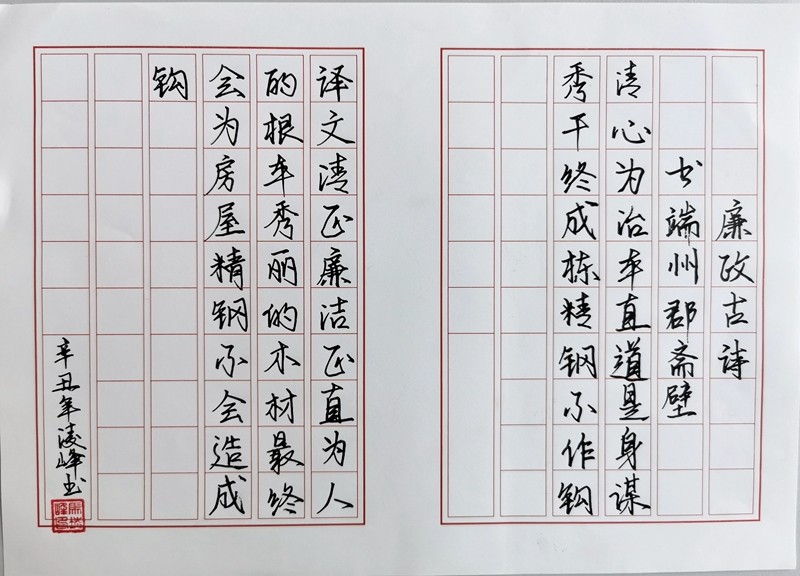 廉政古诗
书端州郡斋壁
清心为治本直道是身谋
秀干终成栋精钢不作钩
译文清正廉洁正直为人
的根本秀丽的木材最终
会为房屋精钢不会造成
钩
辛丑年凌峰书